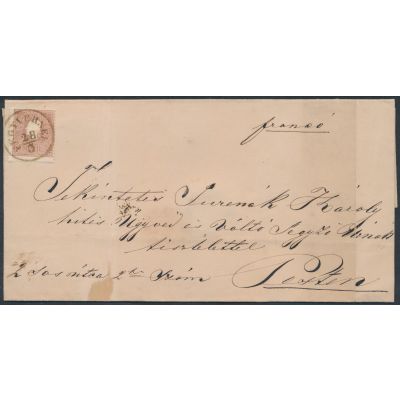 28
francó
Tekintetes Jurenák Károly
hites Ügyvéd és Váltó Jegyző Urnak
tisztelettel
2 Sas útcza 2 Szám Pesten